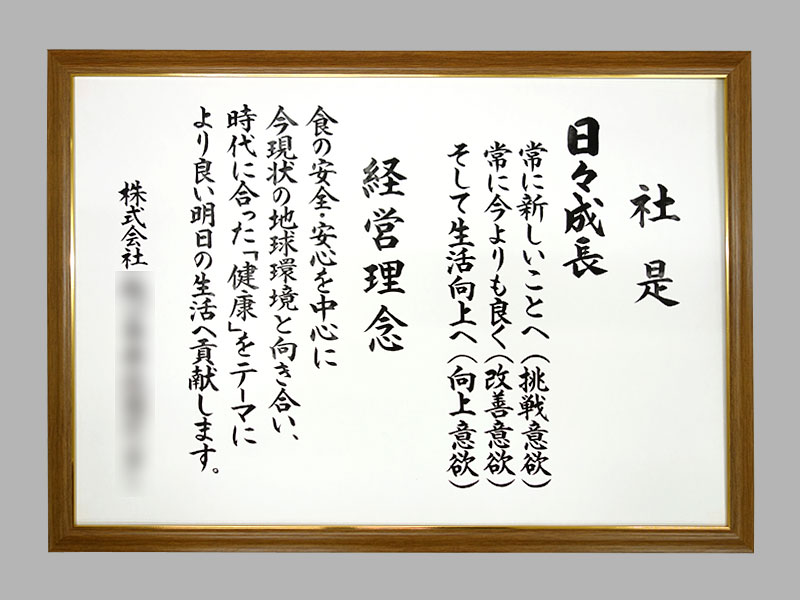 社是
日々成長
常に新しいことへ(挑戦意欲)
常に今よりも良く(改善意欲)
そして生活向上へ(向上意欲)
経営理念
食の安全・安心を中心に
今現状の地球環境と向き合い、
時代に合った「健康」をテーマに
より良い明日の生活へ貢献します。
株式会社